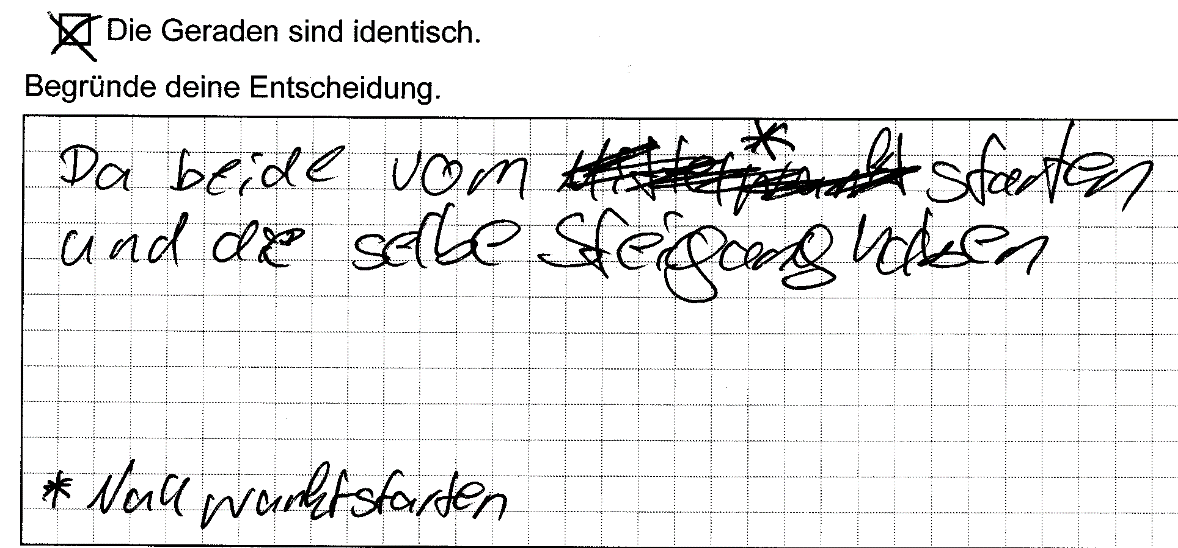 Die Geraden sind identisch.
Begründe deine Entscheidung.
Da beide vom * starten
und die selbe Steigung haben
* Nullpunkt starten